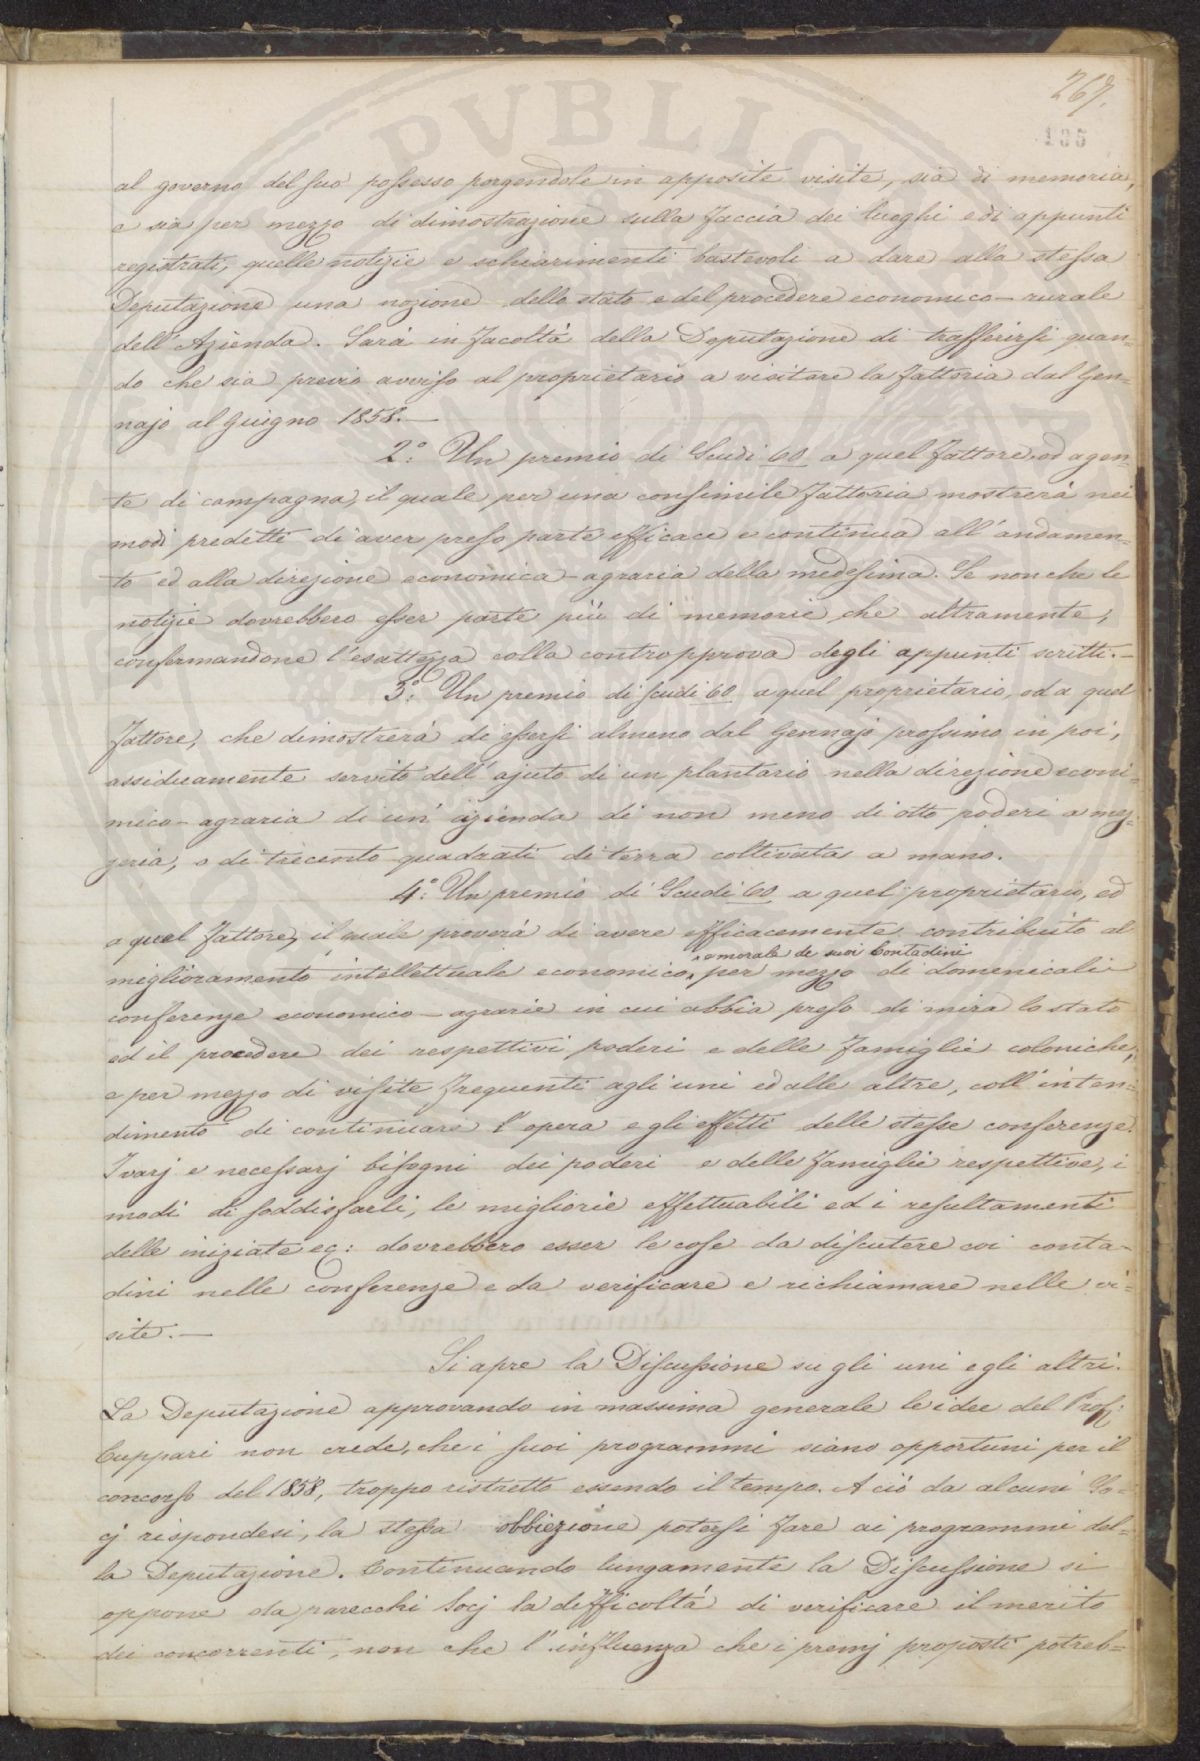 267.
135
al governo del suo possesso porgendole in apposite visite, sia di memoria,
e sia per mezzo di dimostrazione sulla faccia dei luoghi e di appunti
registrati, quelle notizie e schiarimenti bastevoli a dare alla stessa
Deputazione una nozione dello stato e del procedere economico-rurale
dell'Azienda. Sarà in facoltà della Deputazione di trasferirsi quan=
do che sia previo avviso al proprietario a visitare la fattoria dal Gen=
najo al Giugno 1858.—
2°: Un premio di Scudi 60 a quel fattore, od agen=
te di campagna, il quale per una consimile fattoria mostrerà nei
modi predetti di aver preso parte efficace e continua all'andamen=
to ed alla direzione economica-agraria della medesima. Se non che le
notizie dovrebbero esser parte più di memorie che altramente,
confermandone l'esattezza colla contropprova degli appunti scritti.—
3°: Un premio di scudi 60 a quel proprietario, od a quel
fattore, che dimostrerà di essersi almeno dal Gennajo prossimo in poi,
assiduamente servito dell'ajuto di un plantario nella direzione econi=
mico-agraria di un'azienda di non meno di otto poderi a mez=
zeria, o di trecento quadrati di terra coltivata a mano.
4°: Un premio di Scudi 60 a quel proprietario, ed
a quel fattore, il quale proverà di avere efficacemente contribuito al
e morale de suoi Contadini
miglioramento intellettuale economico, per mezzo di domenicali
conferenze economico-agrarie in cui abbia preso di mira lo stato
ed il procedere dei respettivi poderi e delle famiglie coloniche,
e per mezzo di visite frequenti agli uni ed alle altre, coll'inten=
dimento di continuare l'opera e gli effetti delle stesse conferenze.
I varj e necessarj bisogni dei poderi e delle famiglie respettive, i
modi di soddisfarli, le migliorie effettuabili ed i resultamenti
delle iniziate ec: dovrebbero esser le cose da discutere coi conta-
dini nelle conferenze e da verificare e richiamare nelle vi=
site.—
Si apre la Discussione su gli uni e gli altri.
La Deputazione approvando in massima generale le idee del Prof:
Cuppari non crede, che i suoi programmi siano opportuni per il
concorso del 1858, troppo ristretto essendo il tempo. A ciò da alcuni So=
cj rispondesi, la stessa obbiezione potersi fare ai programmi del=
la Deputazione. Continuando lungamente la Discussione si
oppone da parecchi Socj la difficoltà di verificare il merito
dei concorrenti, non che l'influenza che i premj proposti potreb=